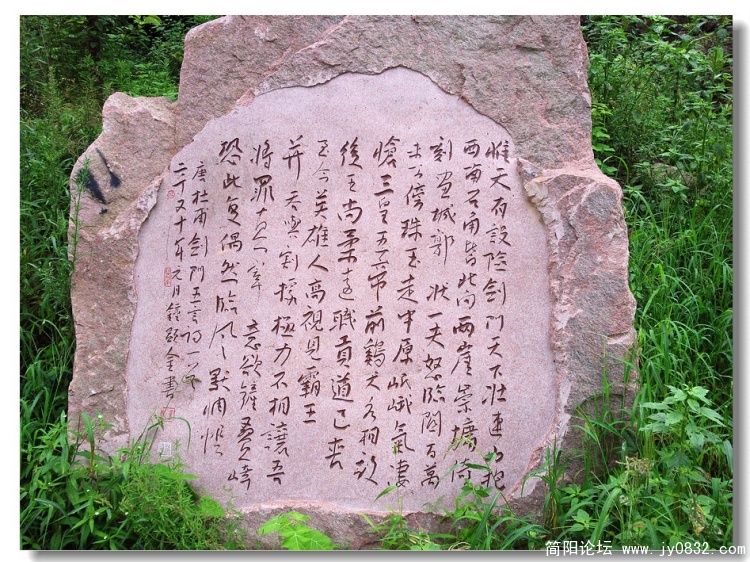 惟天有設險劍門天下壯連山抱
西南石角皆北向兩崖崇墉倚
刻畫城郭狀一夫怒臨關百萬
未可傍珠玉走中原岷峨氣淒
愴三皇五帝前鷄犬各相放
後王尚柔遠職貢道已喪
至今英雄人高視見霸王
并吞與割據極力不相讓吾
將罪真宰意欲鏟叠嶂
恐此復偶然臨風默惆悵
唐杜甫劍門五言詩一首
年元月鐘金書
简阳论坛 www.jy0832.com